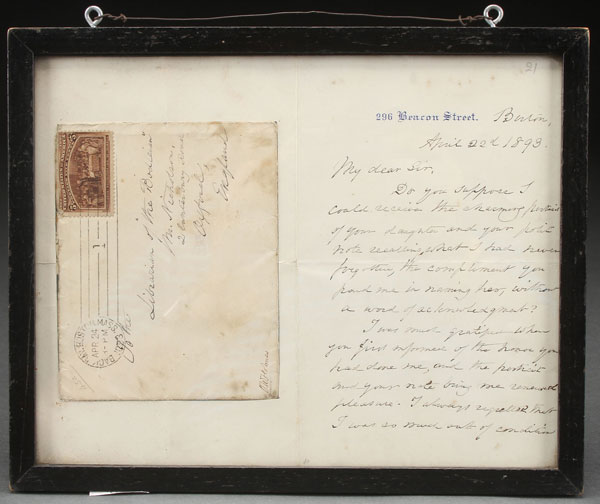 296 Beacon Street. Boston,
April 22d 1893.
My dear Sir,
Do you suppose I
could receive the charming portrait
of your daughter and your polite
note recalling what I had never
forgotten, the compliment you
paid me in naming her, without
a word of acknowledgment?
I was much gratified when
you first informed of the honor you
had done me, and the portrait
and your note bring me renewed
pleasure. I always regretted that
I was so much out of condition
To the
Librarian of the Bodleian
Oxford
England
APR 24
1
21